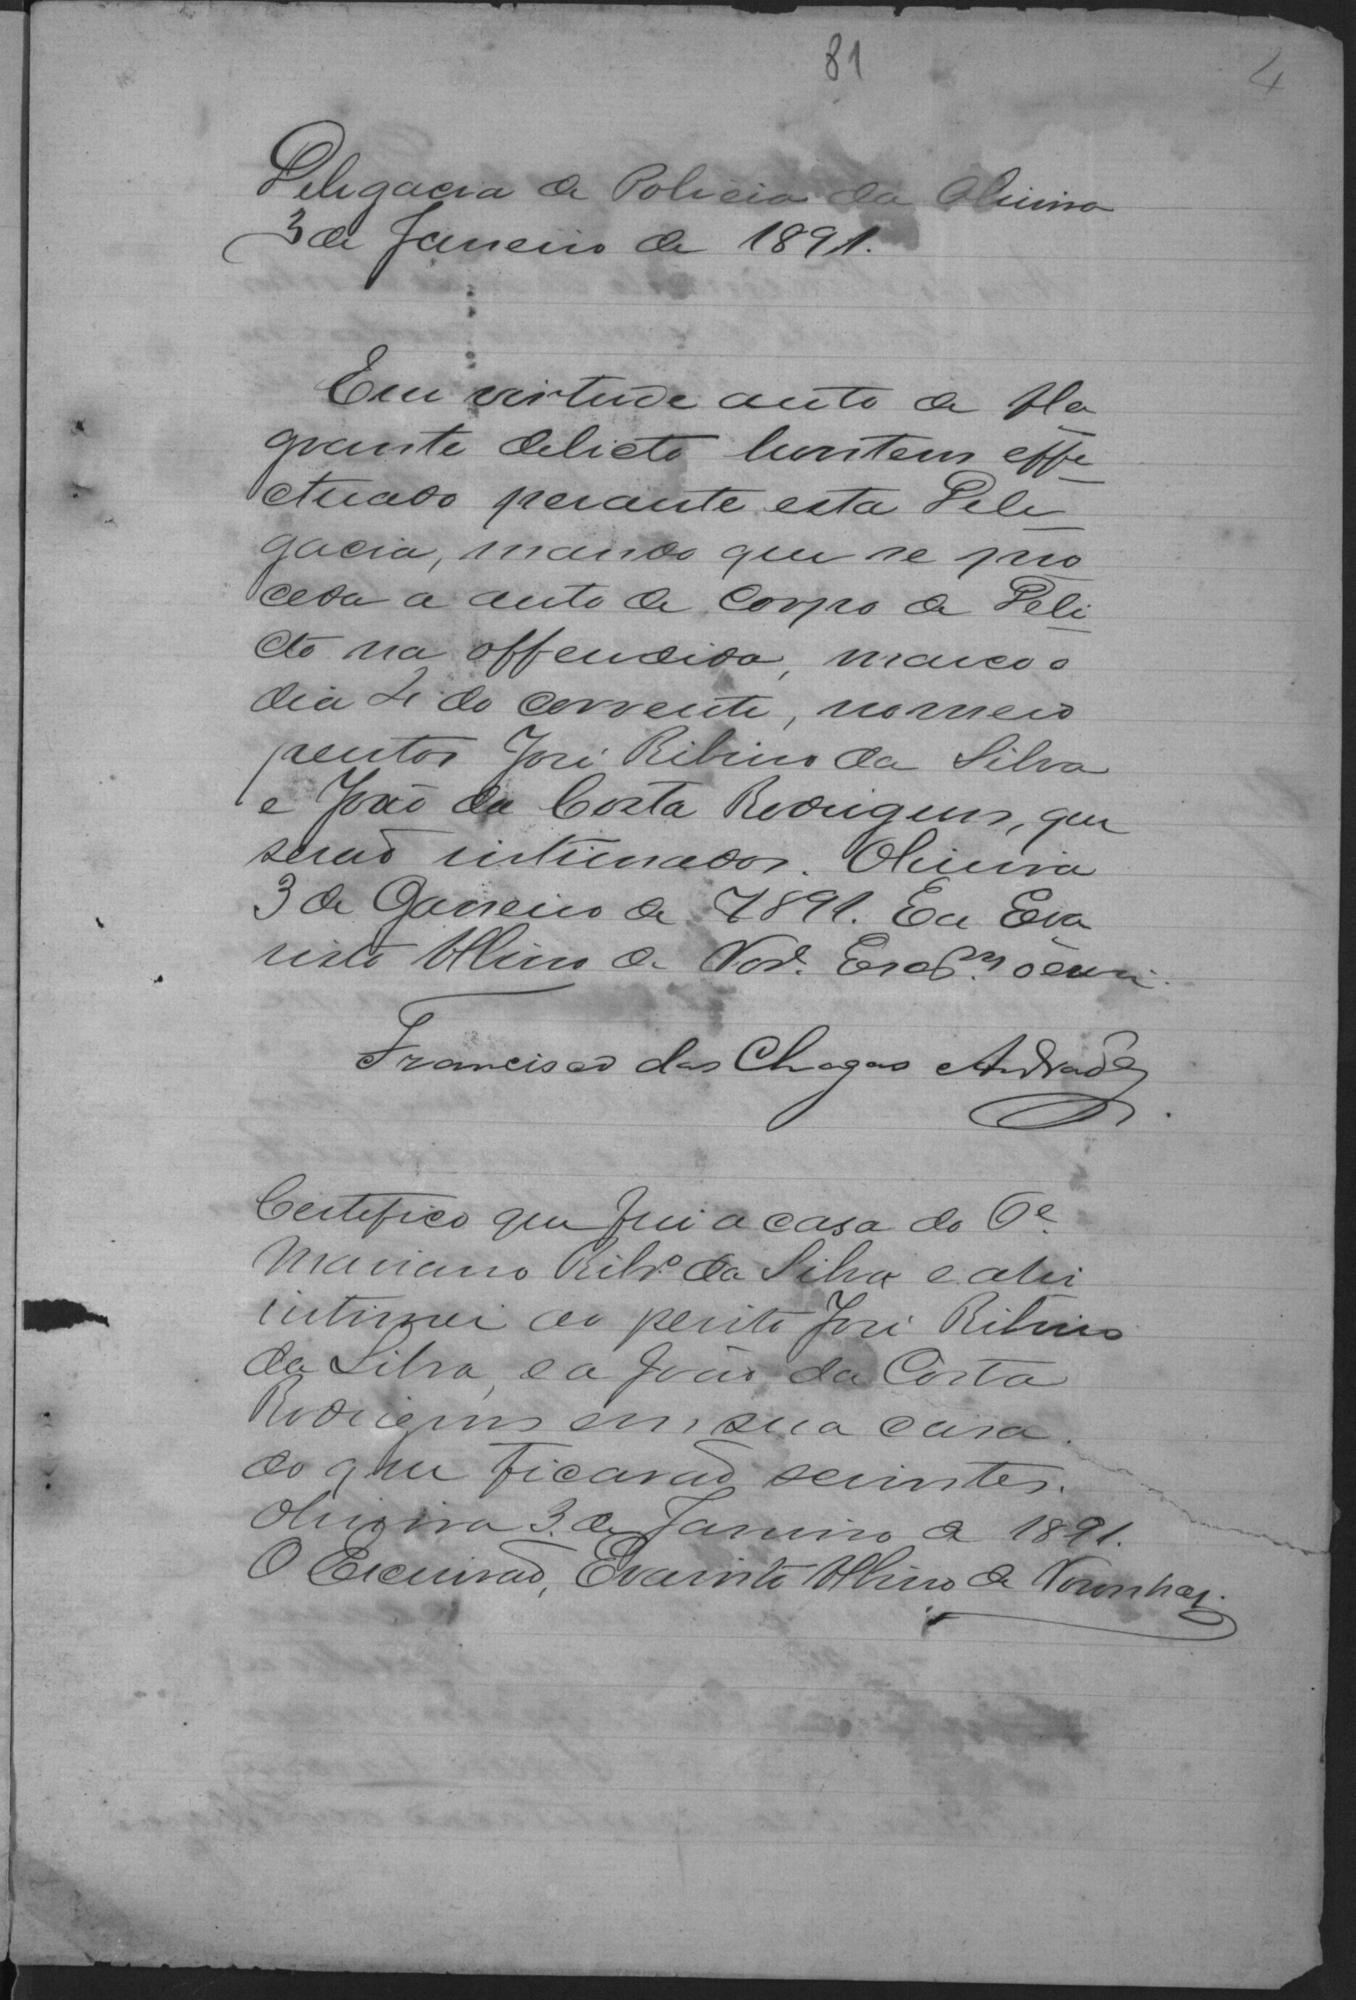 81
4
Delegacia de Policia da Oliveira
3 de Janeiro de 1891.
Em virtude auto de fla
grante delicto hontem effe
ctuado perante esta Dele
gacia, mando que se pro
ceda a auto de Corpo de Deli
cto na offendida, marco o
dia 4 do corrente, nomeio
peritos José Ribeiro da Silva
e João da Costa Rodrigues, que
serão intimados. Oliveira
3 de Janeiro de 1891. Eu Eva
risto Albino de Nor.ª Escr.m o escrevi.
Francisco das Chagas Andrade
Certifico que fui a casa do Cel.
Mariano Ribr.º da Silva e ahi
intimei ao perito José Ribeiro
da Silva, e a João da Costa
Rodrigues em sua casa.
do que ficarão scientes.
Oliveira 3 de Janeiro de 1891.
O Escrivão, Evaristo Albino de Noronha.